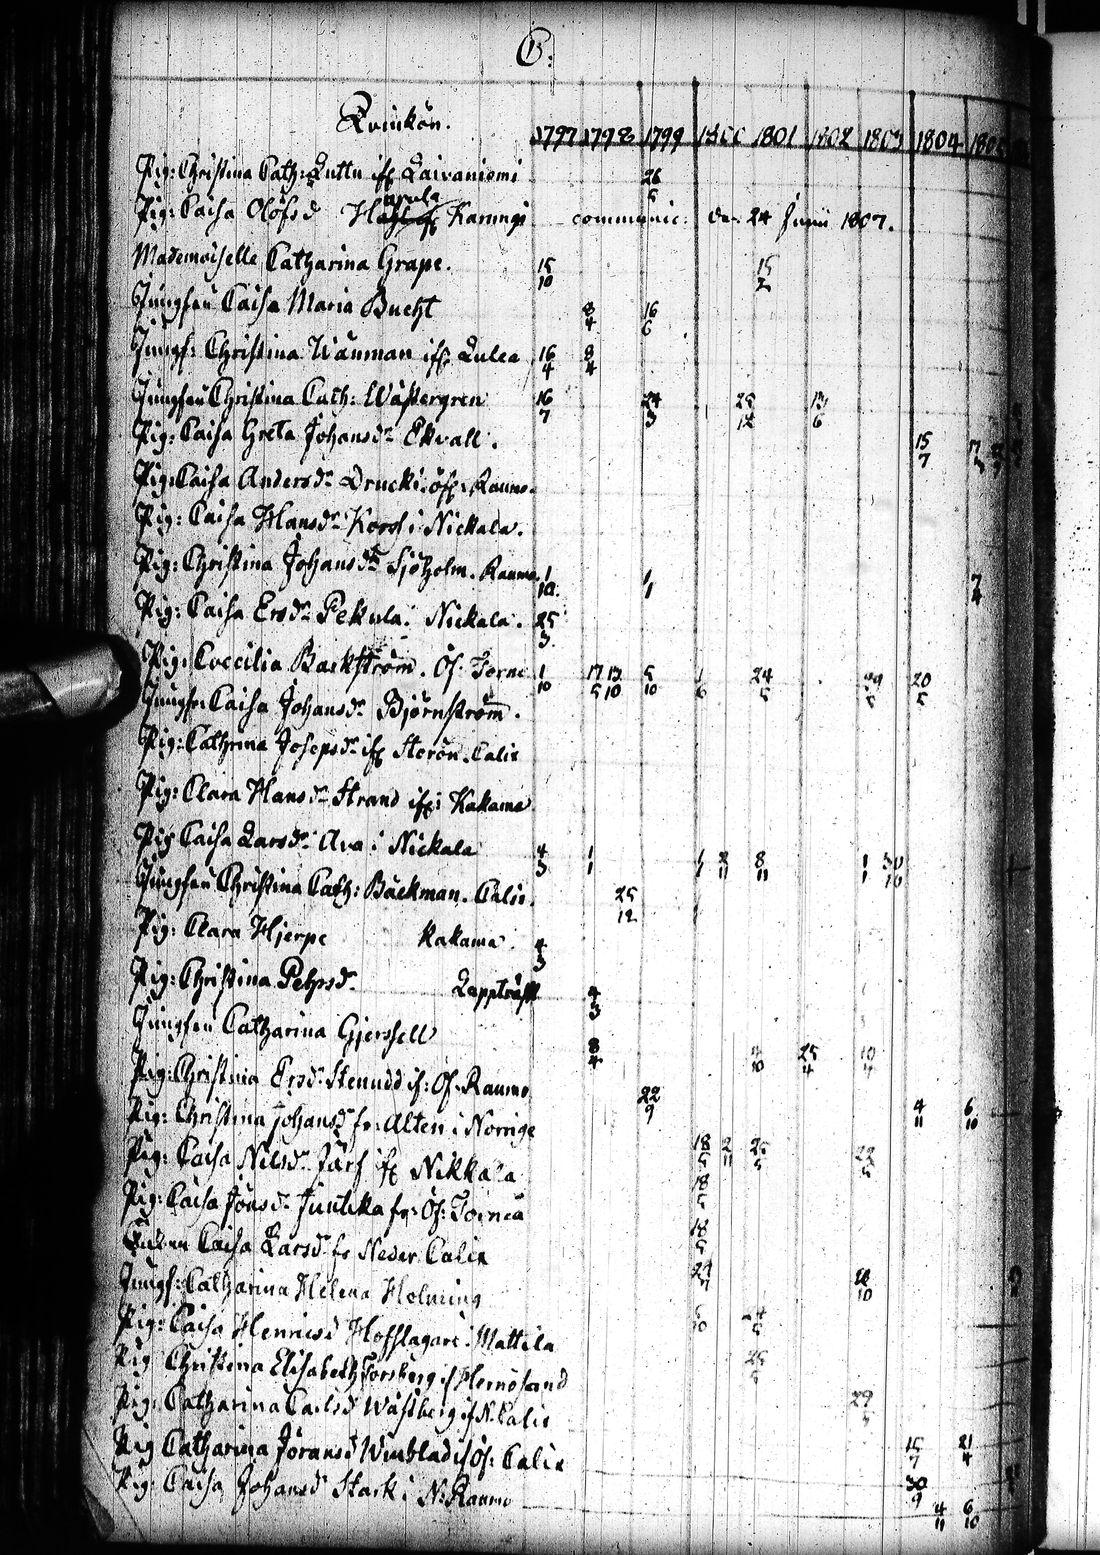 C.
Qvinkön.
1797 1798 1799 1800 1801 1802 1803 1804 1805
Pig: Christina Cath: Luttu if Laivaniemi 26/5
Pig: Caisa Olofsd Karungi communic: den 24 Junii 1807.
Mademoiselle Catharina Grape. 15/10 15/2
Jungfru Caisa Maria Bucht 8/4 16/6
Jungf: Christina Wänman if Lulea 16/4 8/4
Jungfru Christina Cath: Wästergren 16/7 24/3 28/12 13/6
Pig: Caisa Greta Johansdr Ekvall. 15/7
Pig: Caisa Andersdr Drucki öf: Raumo.
Pig: Caisa Hansdr Kors i Nickala.
Pig: Christina Johansdr Sjöholm. Raumo 1/10. 1/1 7/4
Pig: Caisa Ersdr Pekula. Nickala. 25/3.
Pig: Coecilia Backström. Öf: Torne 1/10 17/5 12/10 5/10 1/6 24/5 20/5
Jungfr: Caisa Johansdr Björnström.
Pig: Cathrina Josepsdr if Storön. Calix
Pig: Clara Hansdr Strand if: Kakama
Pig Caisa Larsdr Ava i Nickala 4/3 1/1 1/1 2/11 8/11 1/1 30/10
Jungfru Christina Cath: Bäckman. Calix. 25/12
Pig: Clara Hjerpe Kakama. 4/3
Pig: Christina Pehrsd. Lappträsk 4/3
Jungfru Catharina Gjersfell 8/4 25/4
Pig: Christina Ersdr Stenudd if: Öf. Raumo 22/9
Pig: Christina Johansdr fr: Alten i Norrige 4/11 6/10
Pig: Caisa Nilsdr Järf if Nikkala 18/5 2/11 25/5 22/5
Pig: Caisa Jönsdr Juntikka fr: Öf: Torneå 18/5
Caisa Larsdr fr Neder Calix 18/5
Jungf: Catharina Helena Holmring 24/7
Pig: Caisa Henricsd Hofslagare. Mattila
Pig: Christina Elisabeth Forsberg if Hernösand 25/5
Pig: Catharina Carlsd Wästberg if N. Calix 29/5
Pig Catharina Göransd Winblad if Öf: Calix 15/7 21/4
Pig: Caisa Johansd Stark i N: Raumo 30/9 4/11 6/10